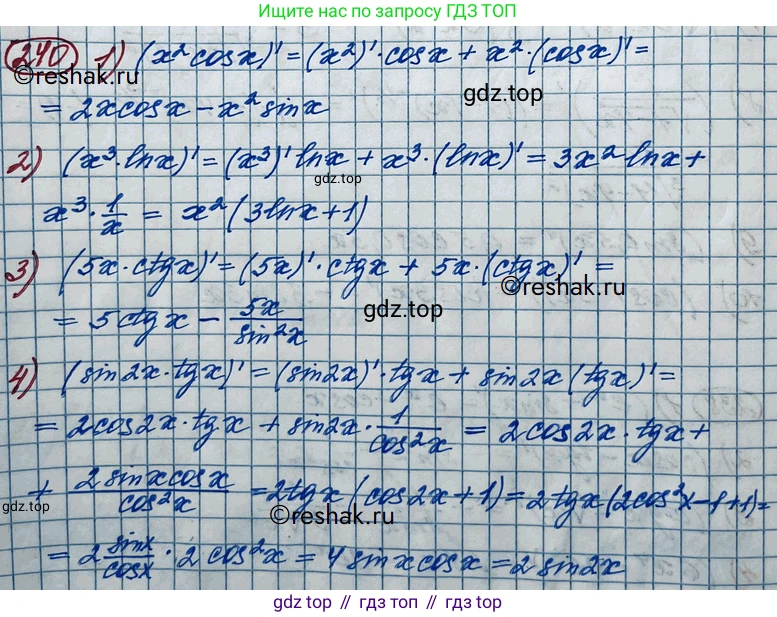 Ищите нас по запросу ГДЗ ТОП
240 1) (x² cosx)' = (x²)'·cosx + x²·(cosx)' =
gdz.top
©reshak.ru
= 2xcosx – x² sinx
2) (x³·lnx)' = (x³)' lnx + x³·(lnx)' = 3x² lnx +
gdz.top
x³·1/x = x²(3lnx+1)
3) (5x·ctgx)' = (5x)'·ctgx + 5x·(ctgx)' =
©reshak.ru
= 5ctgx – 5x/sin²x
gdz.top
4) (sin2x·tgx)' = (sin2x)'·tgx + sin2x(tgx)' =
= 2cos2x·tgx + sin2x·1/cos²x = 2cos2x·tgx +
+ 2sinxcosx/cos²x = 2tgx(cos2x+1) = 2tgx(2cos²x–1+1) =
©reshak.ru
= 2 sinx/cosx · 2cos²x = 4sinxcosx = 2sin2x
gdz.top // гдз топ // gdz.top